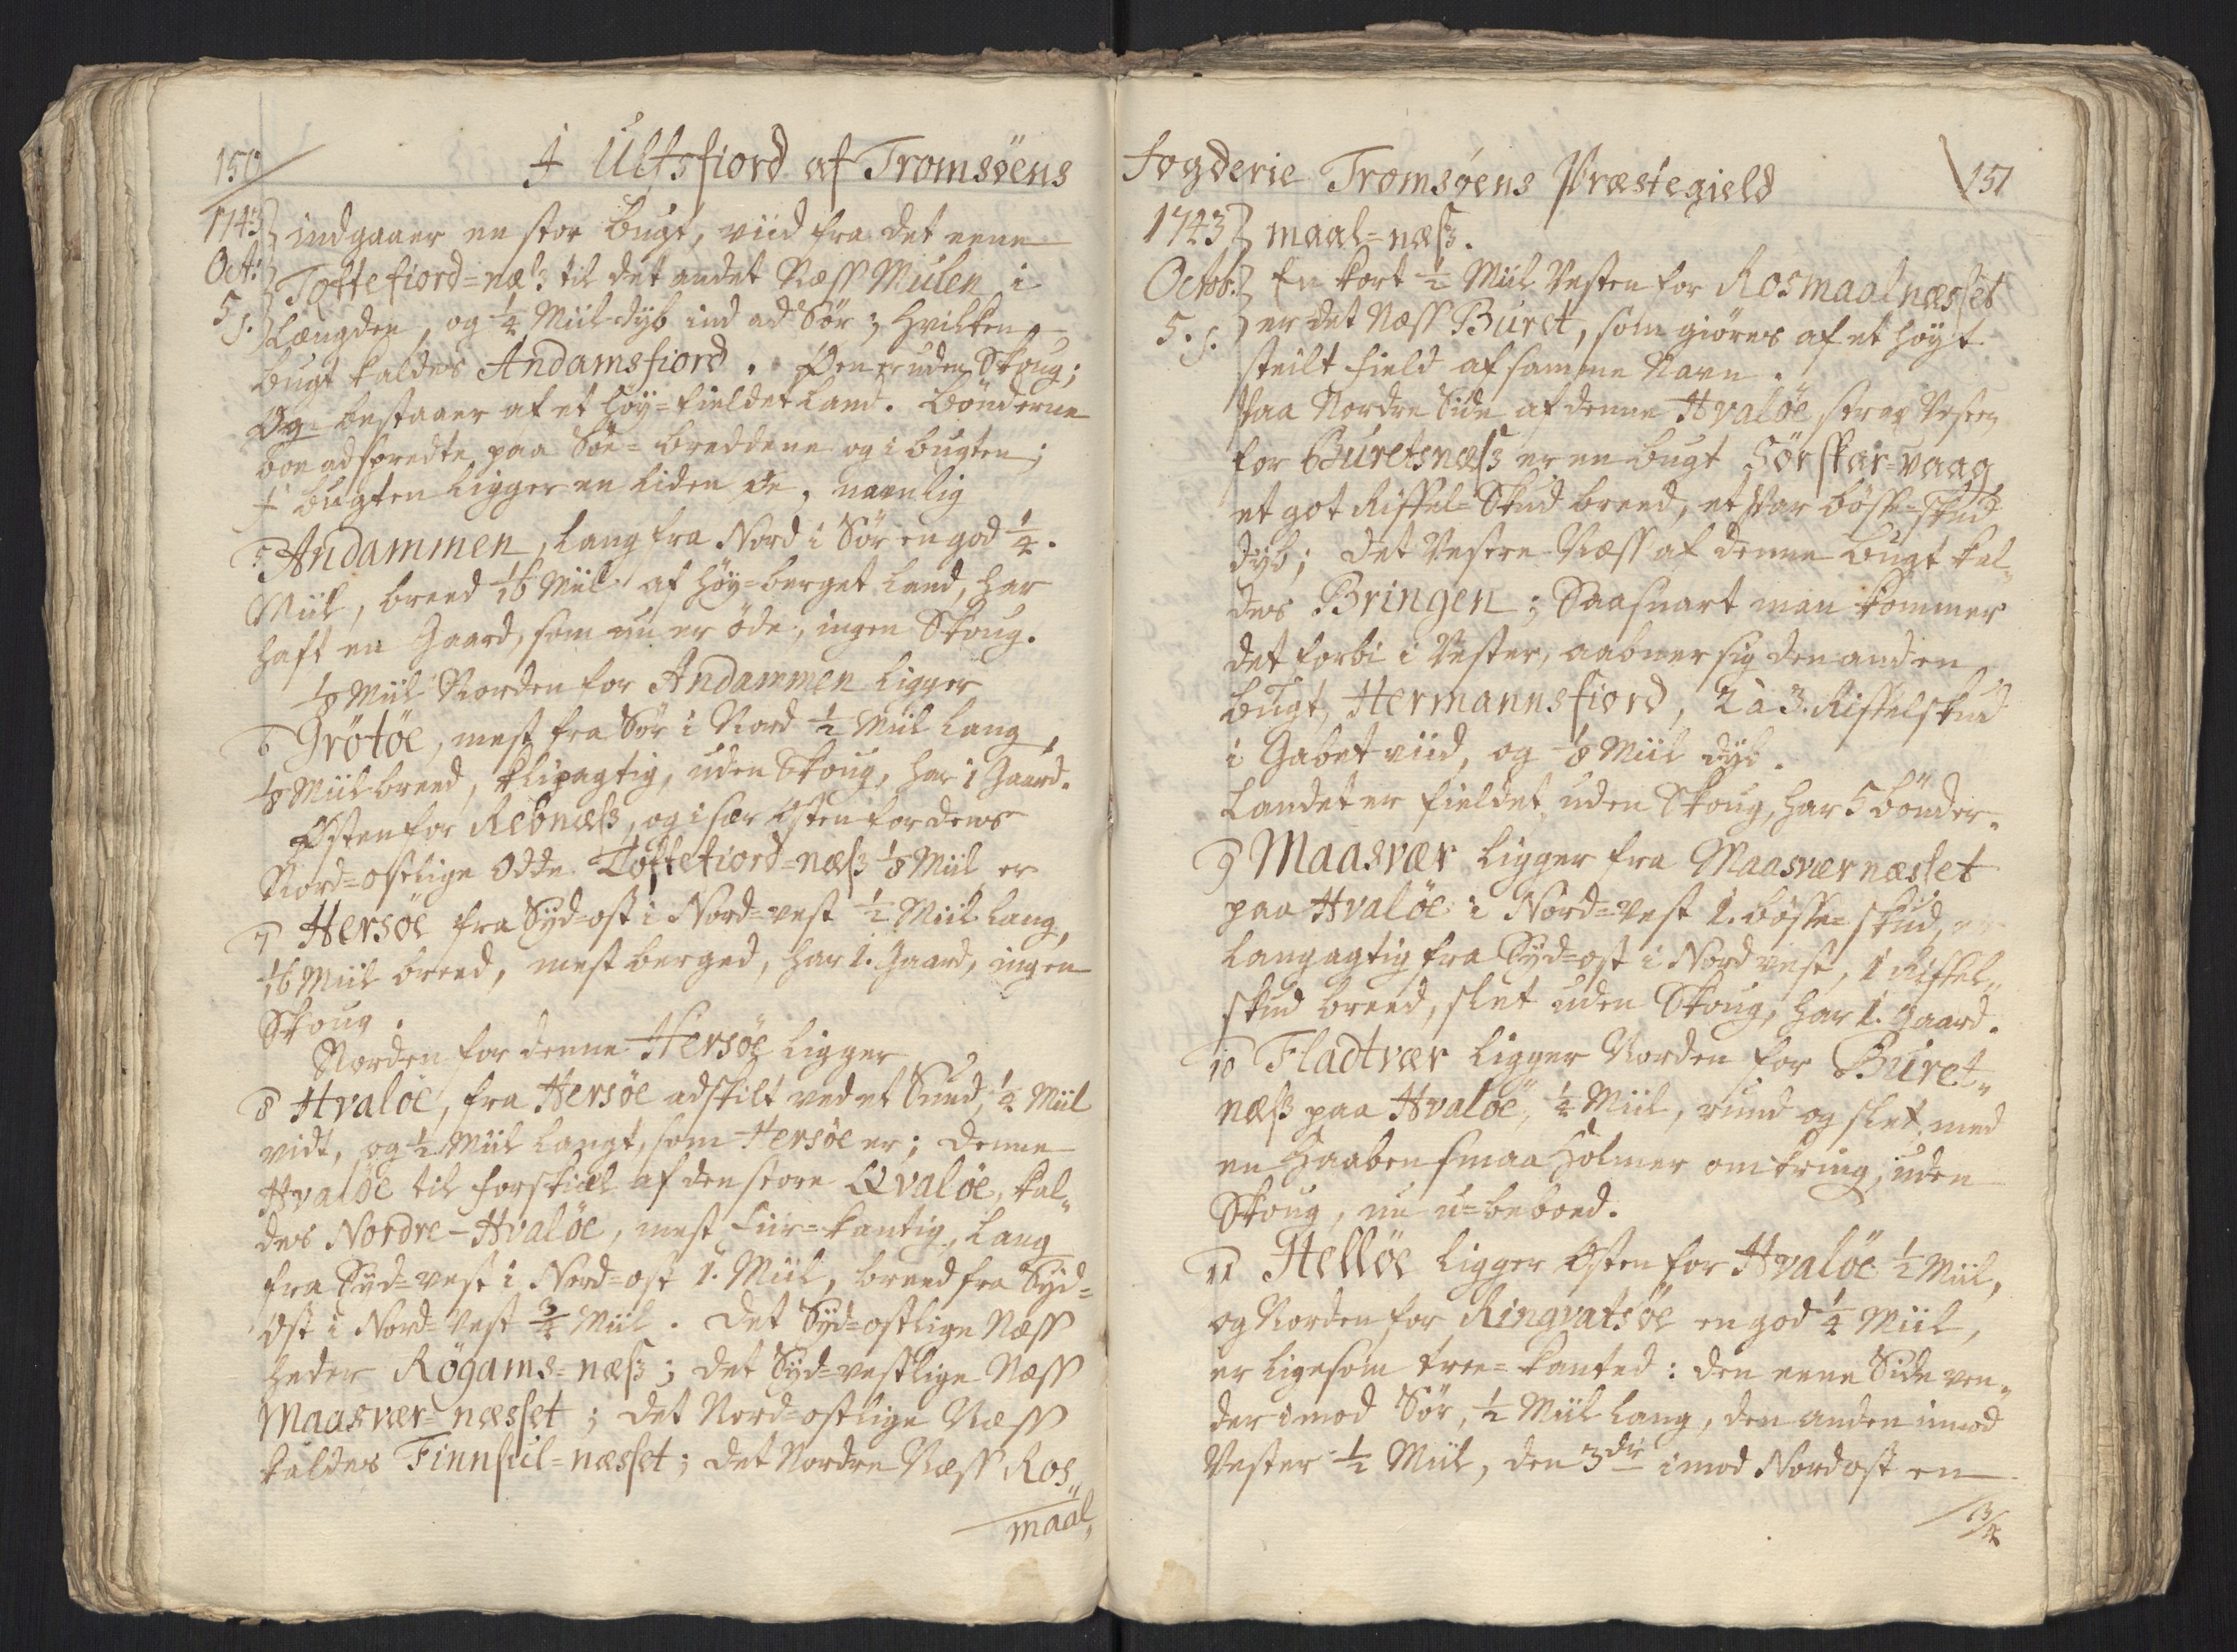 150
I Ulfsfiord af Tromsöens
1743
Octr:
5 s.
indgaaer en stor bugt, viid fra det eene
Toftefiord=næss til det andet Næss Mulen i
Længden, og 1/4 Miil dyb ind ad Sör; hvilken
bugt kaldes Andamsfiord. Øen er uden Skoug;
Og bestaaer af et höy=fieldet Land. Bönderne
boe adspredte paa Söe=breddene og i bugten;
I bugten ligger en liden Öe, navnlig
5 Andammen, lang fra Nord i Sör en god 1/4.
Miil, breed 1/16 Miil af höy=berget Land, har
haft en Gaard, som nu er öde, ingen Skoug.
1/8 Miil Norden for Andammen ligger
6 Grötöe, mest fra Sör i Nord 1/2 Miil lang,
1/8 Miil breed, klipagtig, uden Skoug, har 1 Gaard.
Østen for Rebnæss, og især Østen for dens
Nord=ostlige Odde Toftefiord=næss 1/8 Miil er
7 Hersöe fra Syd=ost i Nord=vest 1/2 Miil lang,
1/16 Miil breed, mest berged, har 1. Gaard, ingen
Skoug.
Norden for denne Hersöe ligger
8 Hvalöe, fra Hersöe adskilt ved et Sund, 1/4 Miil
vidt, og 1/2 Miil langt, som Hersöe er; denne
Hvalöe til forskiæl af den store Qvalöe, kal„
des Nordre-Hvalöe, mest fiir=kantig, lang
fra Syd=vest i Nord=ost 1. Miil, breed fra Syd=
Ost i Nord=Vest 3/4 Miil. Det Syd=ostlige Næss
heder Rögams=næss; det Syd=vestlige Næss
Maasvær=næsset; det Nord=ostlige Næss
kaldes Finnsæl=næsset; det Nordre Næss Ros„
maal„
Fogderie Tromsöens Præstegield
151
1743
Octob.
5. s.
maal=næss.
En kort 1/2 Miil Vesten for Rosmaalnæsset
er det Næss Buret, som giöres af et höyt
steilt field af samme Navn.
Paa Nordre Side af denne Hvalöe, strax Vesten
for Buretsnæss er en bugt Sörskar=vaag
et got Riffel=Skud breed, et Par bösse=Skud
dyb; det Vestre Næss af denne bugt kal„
des Bringen; Saasnart man kommer
det forbi i Vester, aabner sig den anden
bugt, Hermannsfiord, 2 à 3. Riffelskud
i Gabet viid, og 1/8 Miil dyb.
Landet er fieldet, uden Skoug, har 5 bönder.
9 Maasvær ligger fra Maasværnæsset
paa Hvalöe i Nord=vest 1. bösse=skud,
langagtig fra Syd=ost i Nordvest, 1 Riffel„
skud breed, slet uden Skoug, har 1. Gaard.
10 Fladtvær ligger Norden for Buret„
næss paa Hvalöe, 1/2 Miil, rund og slet, med
en Haaben smaa Holmer omkring, uden
Skoug, nu u=beboed.
11 Hellöe ligger Østen for Hvalöe 1/2 Miil,
og Norden for Ringvatsöe en god 1/4 Miil,
er ligesom tree=kanted: den eene Side ven„
der imod Sör, 1/2 Miil lang, den anden imod
Vester 1/2 Miil, den 3die imod Nordost en
3/4